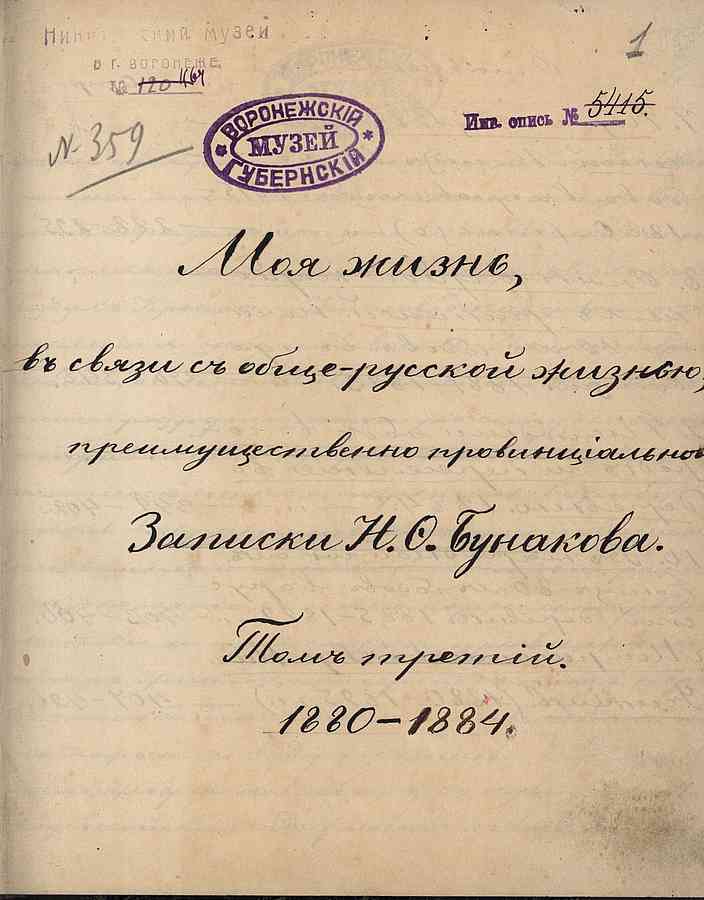 музей
1
В Г. ВОРОНЕЖЕ
№ 120
N. 359
ВОРОНЕЖСКІЙ
МУЗЕЙ
ГУБЕРНСКІЙ
Инв. опись № 5415.
Моя жизнь,
въ связи съ обще-русской жизнью,
преимущественно провинціально
Записки Н. Ѳ. Бунакова.
Томъ третій.
1880-1884.